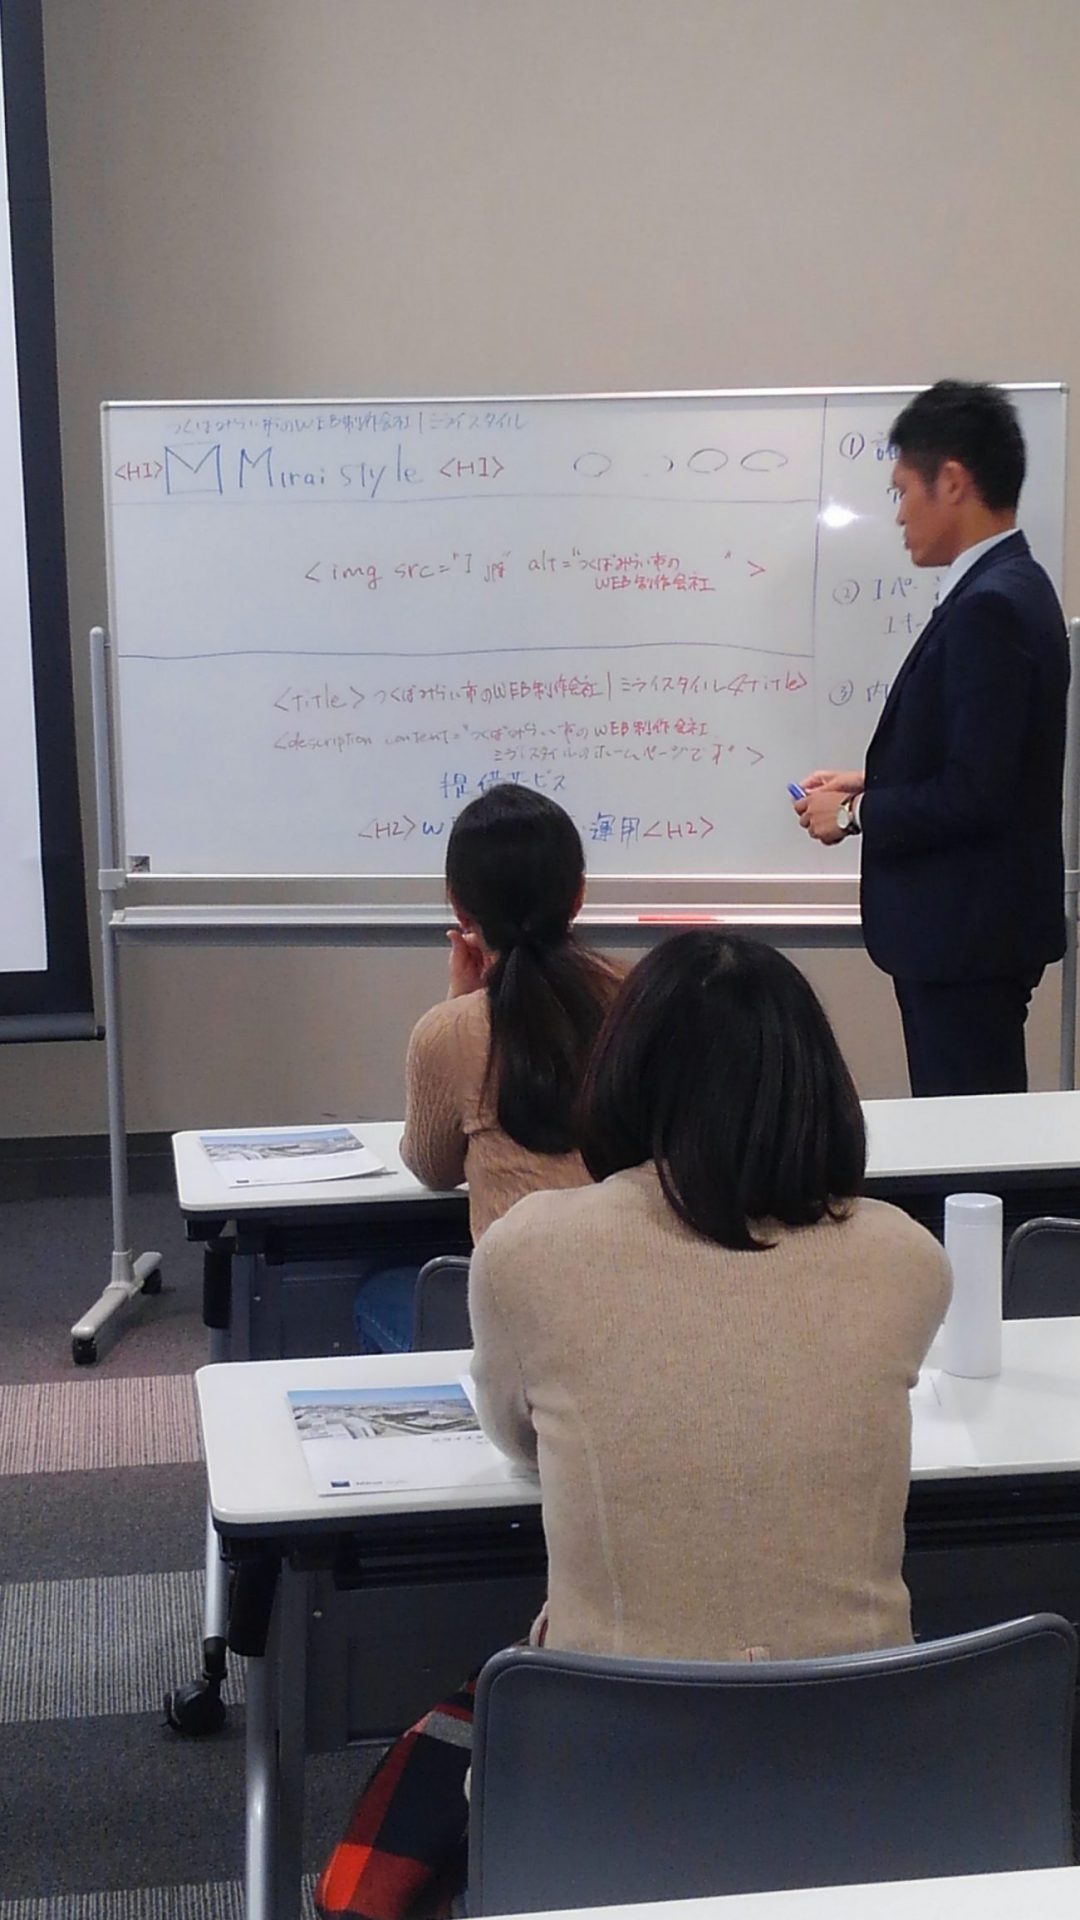 つくばみらい市のWEB制作会社 | ミライスタイル
<H1> Mirai style <H1>
<img src="1.jpg" alt="つくばみらい市の
WEB制作会社 " >
<title> つくばみらい市のWEB制作会社 | ミライスタイル</title>
<description content="つくばみらい市のWEB制作会社
ミライスタイルのホームページです" >
提供サービス
<H2> W 運用 <H2>
①
② 1ペ
1キー
③ 内